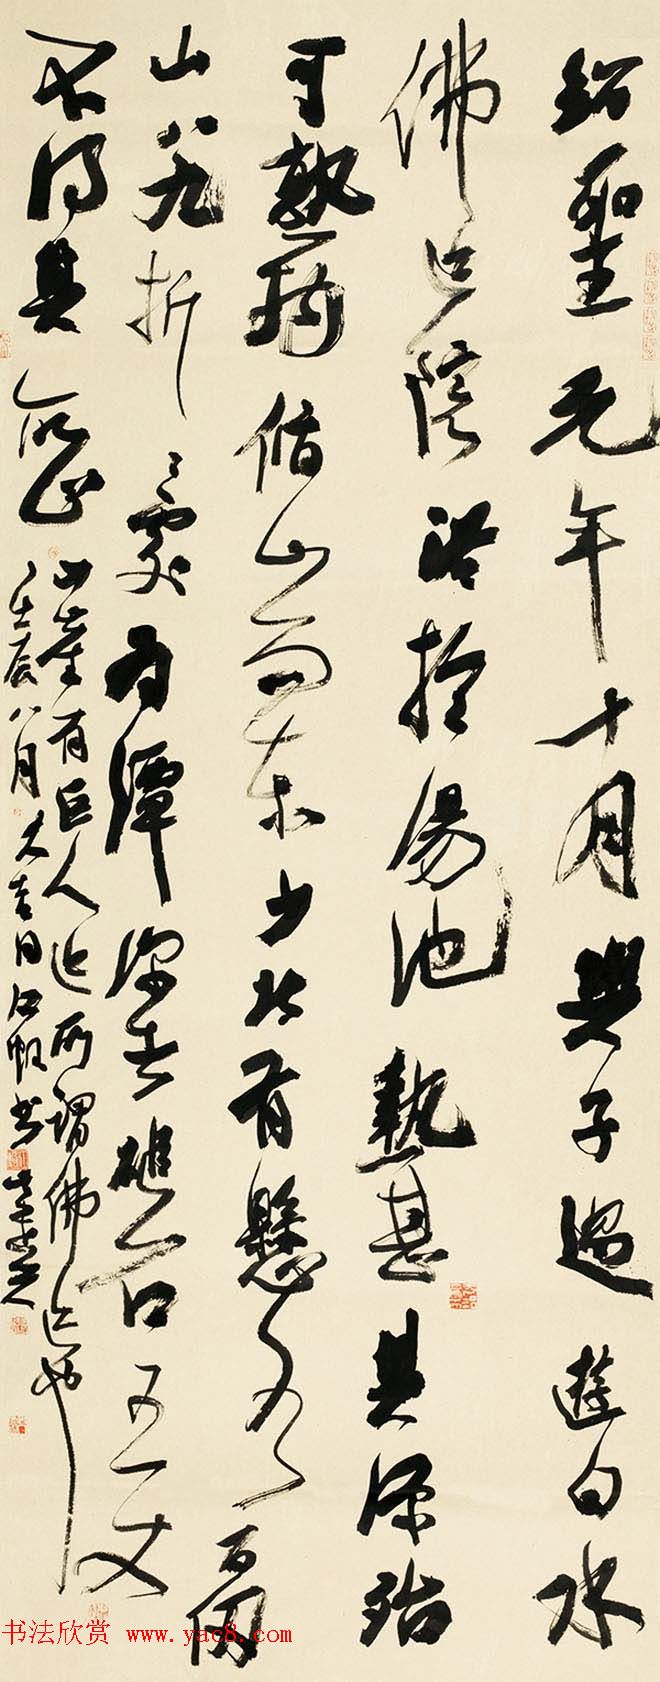 绍圣元年十月與子過遊白水
佛迹院浴於湯池熱甚其源殆
可熟物循山而東少北有懸水百仞
山八九折折處为潭深者磓石五丈
不得其所止
山崖有巨人迹所謂佛迹也
壬辰八月大吉日江帆书
书法欣赏 www.yac8.com